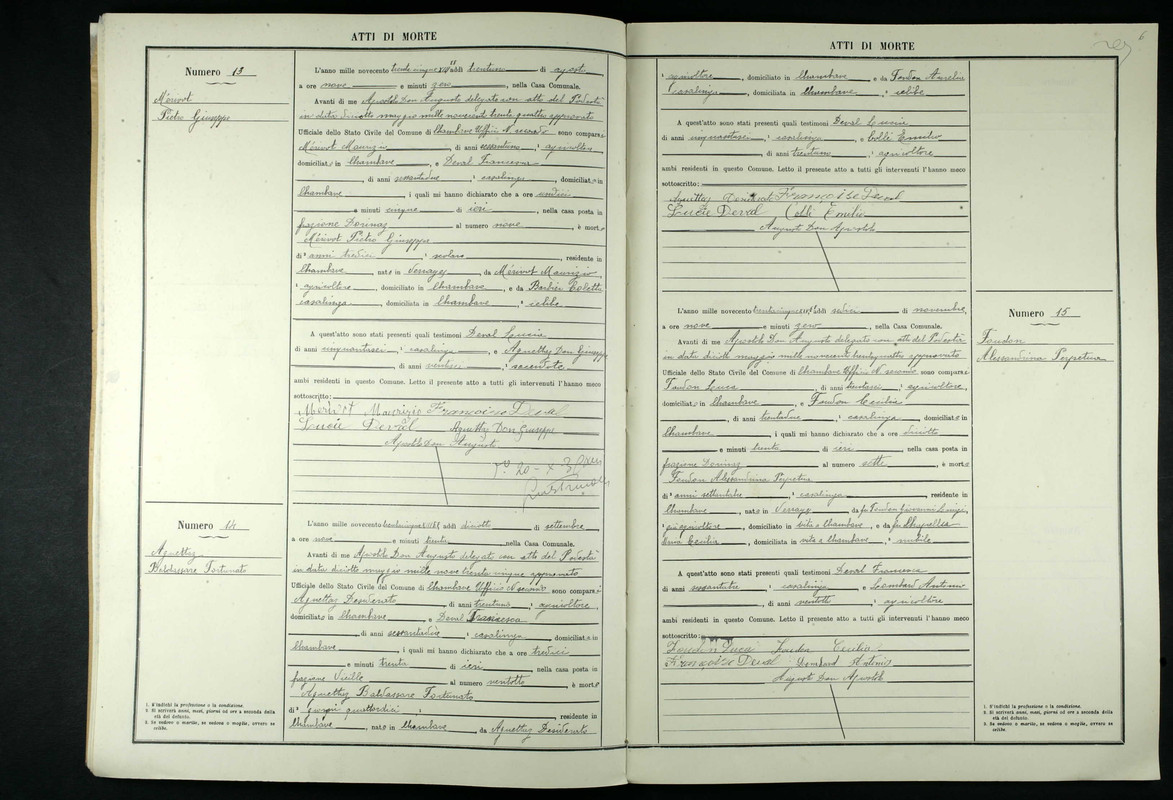 ATTI DI MORTE
Numero 13
Mérivot
Pietro Giuseppe
L'anno mille novecento trentacinque XIII addì trentuno di agosto
a ore nove e minuti zero, nella Casa Comunale.
Avanti di me Apostolo Don Augusto delegato con atto del Podestà
in data diciotto maggio mille novecento trenta quattro approvato
Ufficiale dello Stato Civile del Comune di Chambave Ufficio N. secondo sono comparsi
Mérivot Maurizio di anni sessantuno, agricoltore
domiciliato in Chambave, e Deval Francesca
di anni sessantadue, casalinga, domiciliata in
Chambave, i quali mi hanno dichiarato che a ore undici
e minuti cinque di ieri, nella casa posta in
frazione Dorinaz al numero nove, è morto
Mérivot Pietro Giuseppe
di anni tredici, scolaro, residente in
Chambave, nato in Verrayes, da Mérivot Maurizio
agricoltore, domiciliato in Chambave, e da Barbier Coletta
casalinga, domiciliata in Chambave, celibe
A quest'atto sono stati presenti quali testimoni Deval Lucia
di anni cinquantasei, casalinga, e Agnettaz Don Giuseppe
di anni, sacerdote,
ambi residenti in questo Comune. Letto il presente atto a tutti gli intervenuti l'hanno meco
sottoscritto:
Merivot Maurizio Françoise Deval
Lucie Deval Agnettaz Don Giuseppe
Apostolo Don Augusto
Numero 14
Agnettaz
Baldassare Fortunato
L'anno mille novecento trentacinque XIII addì diciotto di settembre,
a ore nove e minuti trenta, nella Casa Comunale.
Avanti di me Apostolo Don Augusto delegato con atto del Podestà
in data diciotto maggio mille nove trenta cinque approvato
Ufficiale dello Stato Civile del Comune di Chambave Ufficio N secondo sono comparsi
Agnettaz Desiderato di anni trentuno, agricoltore,
domiciliato in Chambave, e Deval Francesca
di anni sessantadue, casalinga, domiciliata in
Chambave, i quali mi hanno dichiarato che a ore tredici
e minuti trenta di ieri, nella casa posta in
frazione Vieille al numero ventotto, è morto
Agnettaz Baldassare Fortunato
di giorni quattordici, residente in
Chambave, nato in Chambave da Agnettaz Desiderato
1. S'indichi la professione o la condizione.
2. Si scriverà anni, mesi, giorni od ore a seconda della
età del defunto.
3. Se vedovo o marito, se vedova o moglie, ovvero se
celibe.
ATTI DI MORTE
6
agricoltore, domiciliato in Chambave e da Foudon Aurelia
casalinga, domiciliata in Chambave, celibe
A quest'atto sono stati presenti quali testimoni Deval Lucia
di anni cinquantasei, casalinga, e Collé Emilio
di anni trentuno, agricoltore,
ambi residenti in questo Comune. Letto il presente atto a tutti gli intervenuti l'hanno meco
sottoscritto:
Agnettaz Desiderato Françoise Deval
Lucie Deval Collé Emilio
Augusto Don Apostolo
Numero 15
Foudon
Alessandrina Perpetua
L'anno mille novecento trentacinque XIV addì sedici di novembre,
a ore nove e minuti zero, nella Casa Comunale.
Avanti di me Apostolo Don Augusto delegato con atto del Podestà
in data diciotto maggio mille novecento trentaquattro approvato
Ufficiale dello Stato Civile del Comune di Chambave Ufficio N secondo sono comparsi
Foudon Luca, di anni, agricoltore,
domiciliato in Chambave, e Foudon Cecilia
, di anni trentadue, casalinga, domiciliata in
Chambave, i quali mi hanno dichiarato che a ore diciotto
e minuti trenta di ieri, nella casa posta in
frazione Dorinaz al numero sette, è morta
Foudon Alessandrina Perpetua
di anni settantatre, casalinga, residente in
Chambave, nata in Verrayes da fu Foudon Giovanni Luigi,
già agricoltore, domiciliato in vita a Chambave, e da fu Chapellu
Anna Cecilia, domiciliata in vita a Chambave, nubile
A quest'atto sono stati presenti quali testimoni Deval Francesca
di anni sessantatre, casalinga e Lombard Antonio
di anni ventotto, agricoltore
ambi residenti in questo Comune. Letto il presente atto a tutti gli intervenuti l'hanno meco
sottoscritto:
Foudon Luca Foudon Cecilia
Françoise Deval Lombard Antonio
Augusto Don Apostolo
1. S'indichi la professione o la condizione.
2. Si scriverà anni, mesi, giorni od ore a seconda della
età del defunto.
3. Se vedovo o marito, se vedova o moglie, ovvero se
celibe.